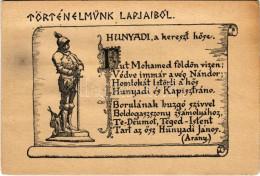 TÖRTÉNELMÜNK LAPJAIBÓL.
HUNYADI, a kereszt hőse.
Fut Mohamed földön vizen:
Védve immár a vég Nándor;
Homlokát istórli a hős
Hunyadi és Kapisztráno.
Borulának buzgó szívvel
Boldogasszony zsámolyához,
Te-Deumot, Téged-Istent
Tart az ősz Hunyadi János.
(Arany.)